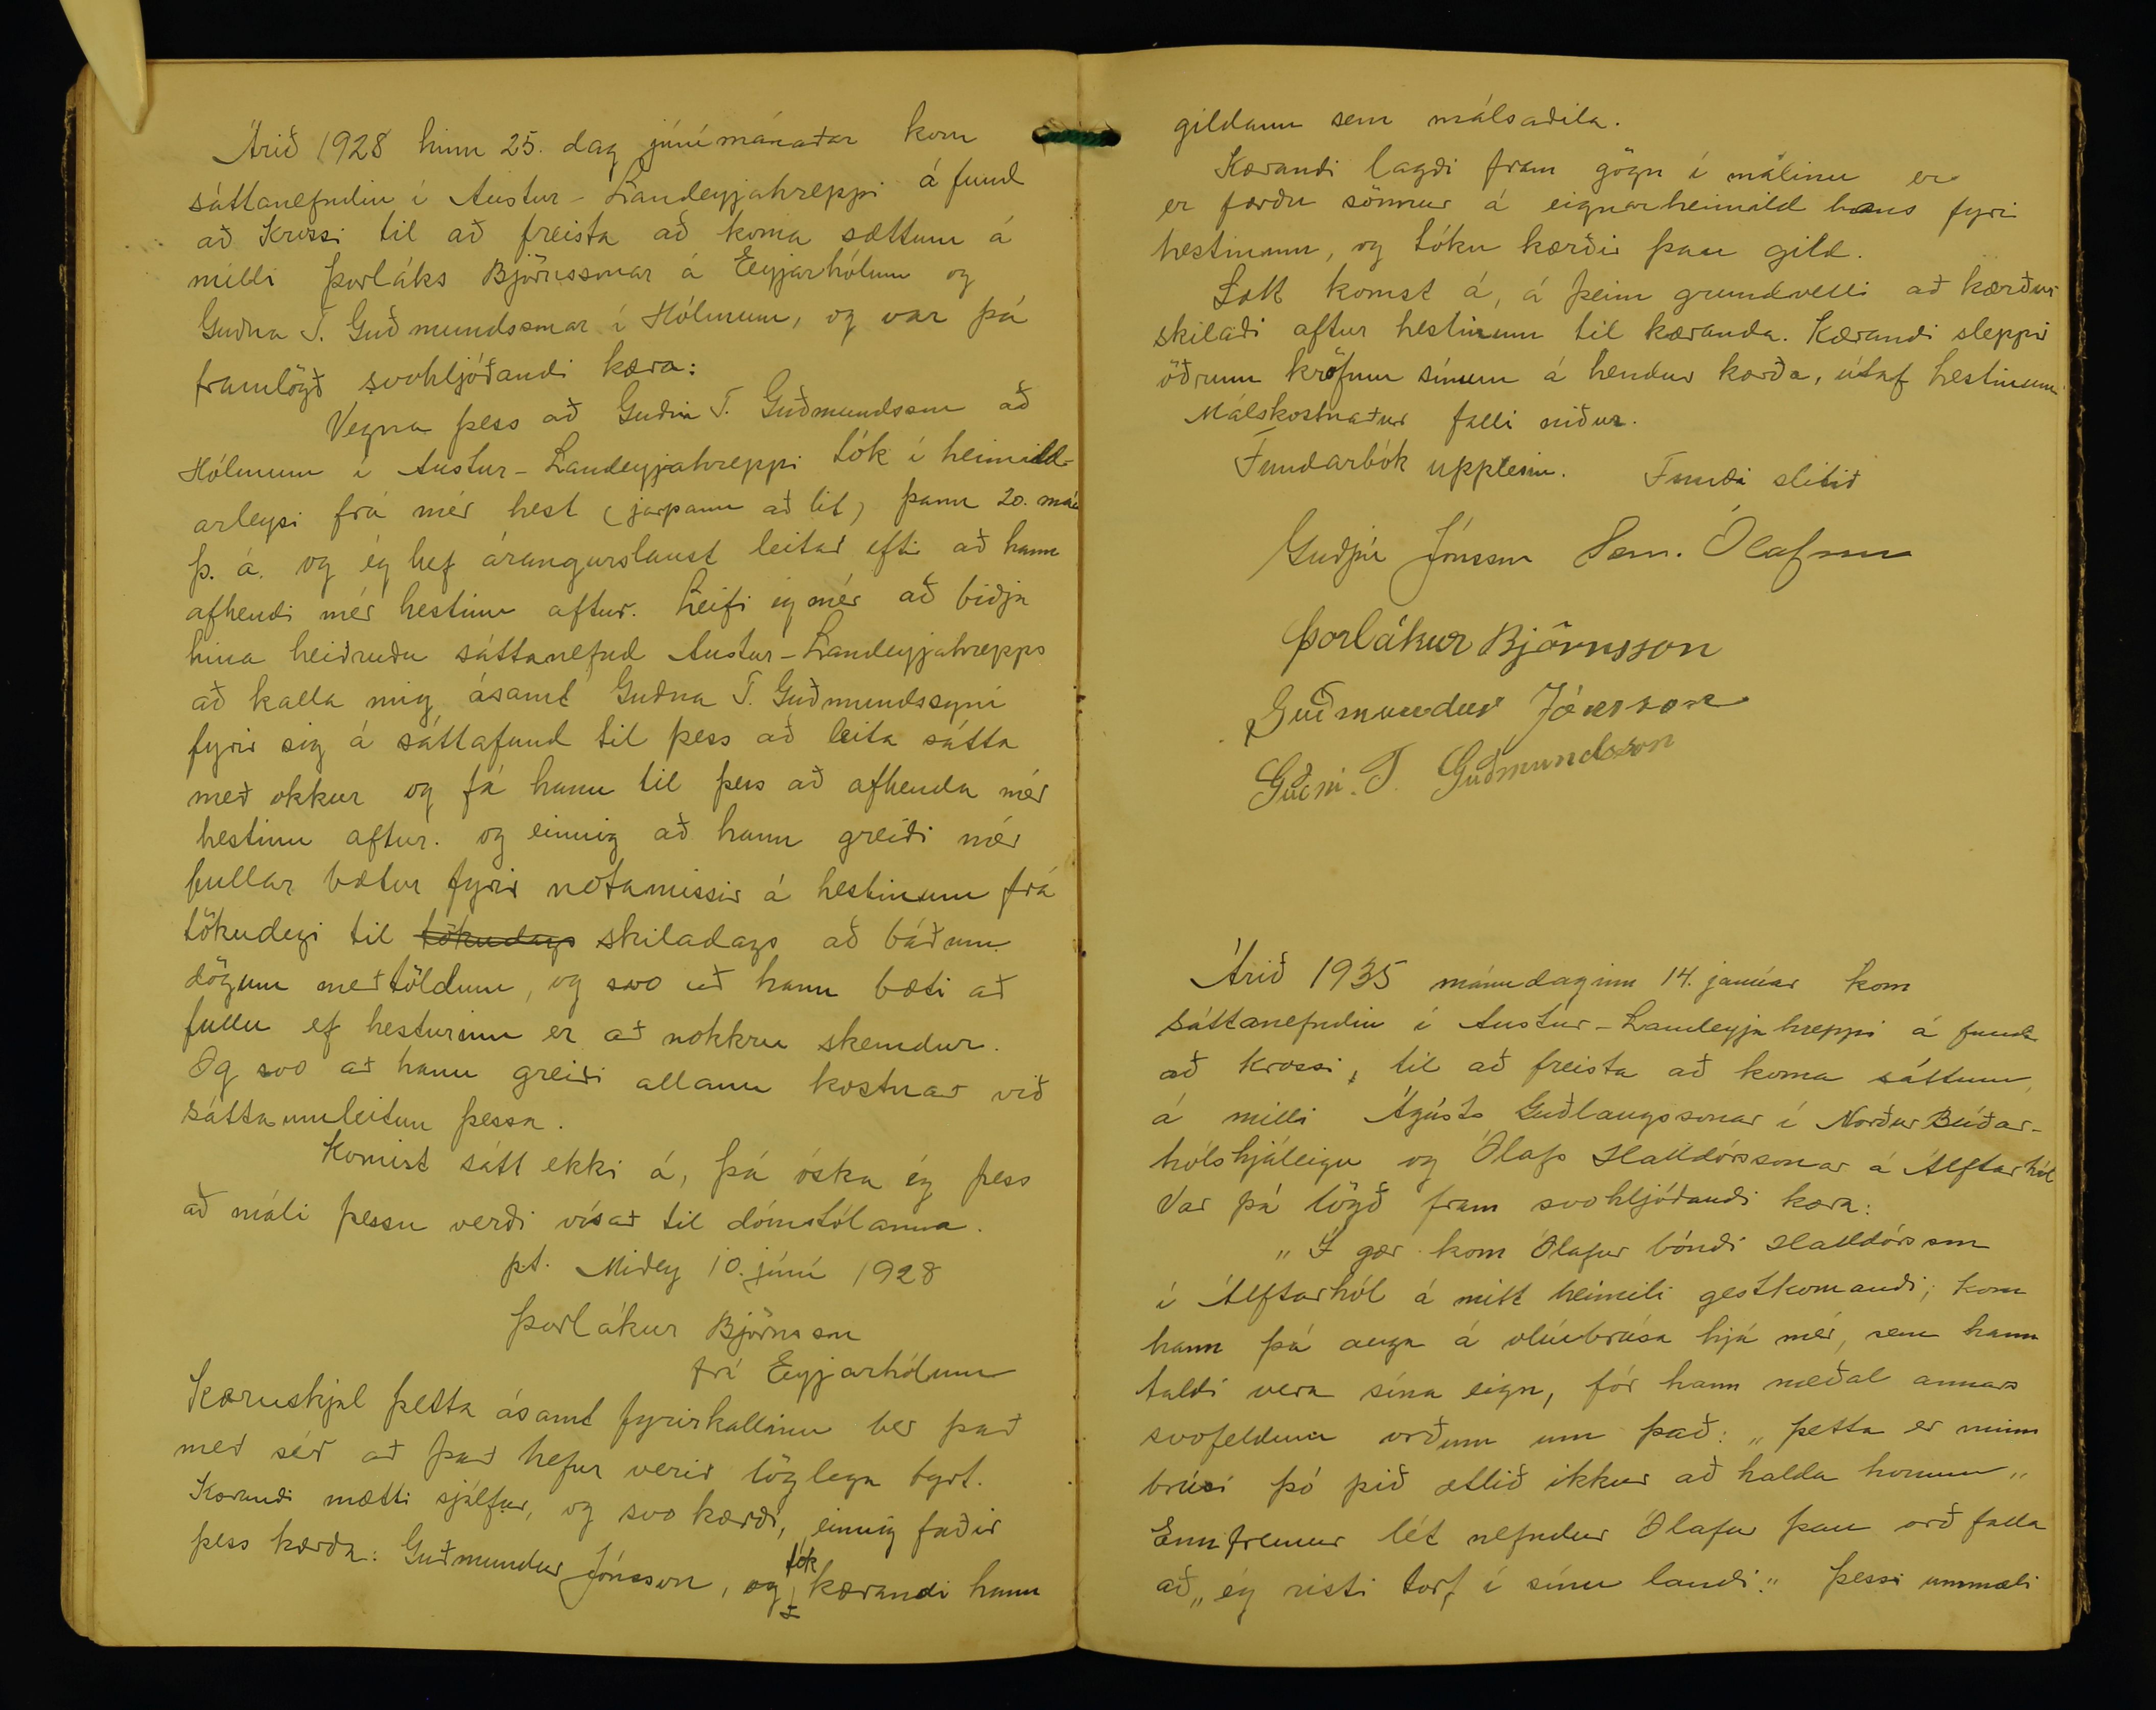 Árið 1928 hinn 25. dag júnímánaðar kom
sáttanefndin í Austur-Landeyjahreppi á fund
að Krossi til að freista að koma sættum á
milli Þorláks Björnssonar á Eyjarhólum og
Guðna T. Guðmundssonar í Hólmum, og var þá
framlögð svohljóðandi kæra:
Vegna þess að Guðni T. Guðmundsson að
Hólmum í Austur-Landeyjahreppi tók í heimild-
arleysi frá mér hest (jarpann að lit) þann 20. maí
þ. á. og ég hef árangurslaust leitað eftir að hann
afhendi mér hestinn aftur. Leifi eg mér að biðja
hina heiðruðu sáttanefnd Austur-Landeyjahrepps
að kalla mig ásamt Guðna T. Guðmundssyni
fyrir sig á sáttafund til þess að leita sátta
með okkur og fá hann til þess að afhenda mér
hestinn aftur. og einnig að hann greiði mér
fullar bætur fyrir notamissir á hestinum frá
tökudegi til tökudags skiladags að báðum
dögum meðtöldum, og svo að hann bæti að
fullu ef hesturinn er að nokkru skemdur.
Og svo að hann greiði allann kostnað við
sáttaumleitun þessa.
Komist sátt ekki á, þá óska ég þess
að máli þessu verði vísað til dómstólanna.
pt. Miðey 10. júní 1928
Þorlákur Björnsson
frá Eyjarhólum
Kæruskjal þetta ásamt fyrirkallinu ber það
með sér að það hefur verið löglega byrt.
Kærandi mætti sjálfur, og svo kærði, einnig faðir
þess kærða: Guðmundur Jónsson, og tók kærandi hann
gildann sem málsaðila.
Kærandi lagði fram gögn í málinu er
er færðu sönnur á eignarheimild hans fyri
hestinum, og tóku kærðir þau gild.
Sætt komst á, á þeim grundvelli að kærður
skilaði aftur hestinum til kæranda. Kærandi sleppir
öðrum kröfum sínum á hendur kærða, útaf hestinum.
Málskostnaður falli niður.
Fundarbók upplesin. Fundi slitið
Guðjón Jónsson Sæm. Ólafsson
Þorlákur Björnsson
Guðmundur Jónsson
Guðni. T. Guðmundsson
Árið 1935 mánudaginn 14. janúar kom
sáttanefndin í Austur-Landeyjahreppi á fund
að Krossi, til að freista að koma sáttum,
á milli Ágústs Guðlaugssonar í Norður Búðar-
hólshjáleigu og Ólafs Halldórssonar á Álftarhól
Var þá lögð fram svohljóðandi kæra:
"Í gær kom Ólafur bóndi Halldórsson
í Álftarhól á mitt heimili gestkomandi; kom
hann þá auga á olíubrúsa hjá mér, sem hann
taldi vera sína eign, fór hann meðal annars
svofeldum orðum um það: "þetta er minn
brúsi þó þið ætlið ikkur að halda honum"
Ennfremur lét nefndur Ólafur þau orð falla
að "ég risti torf í sínu landi." Þessi ummæli